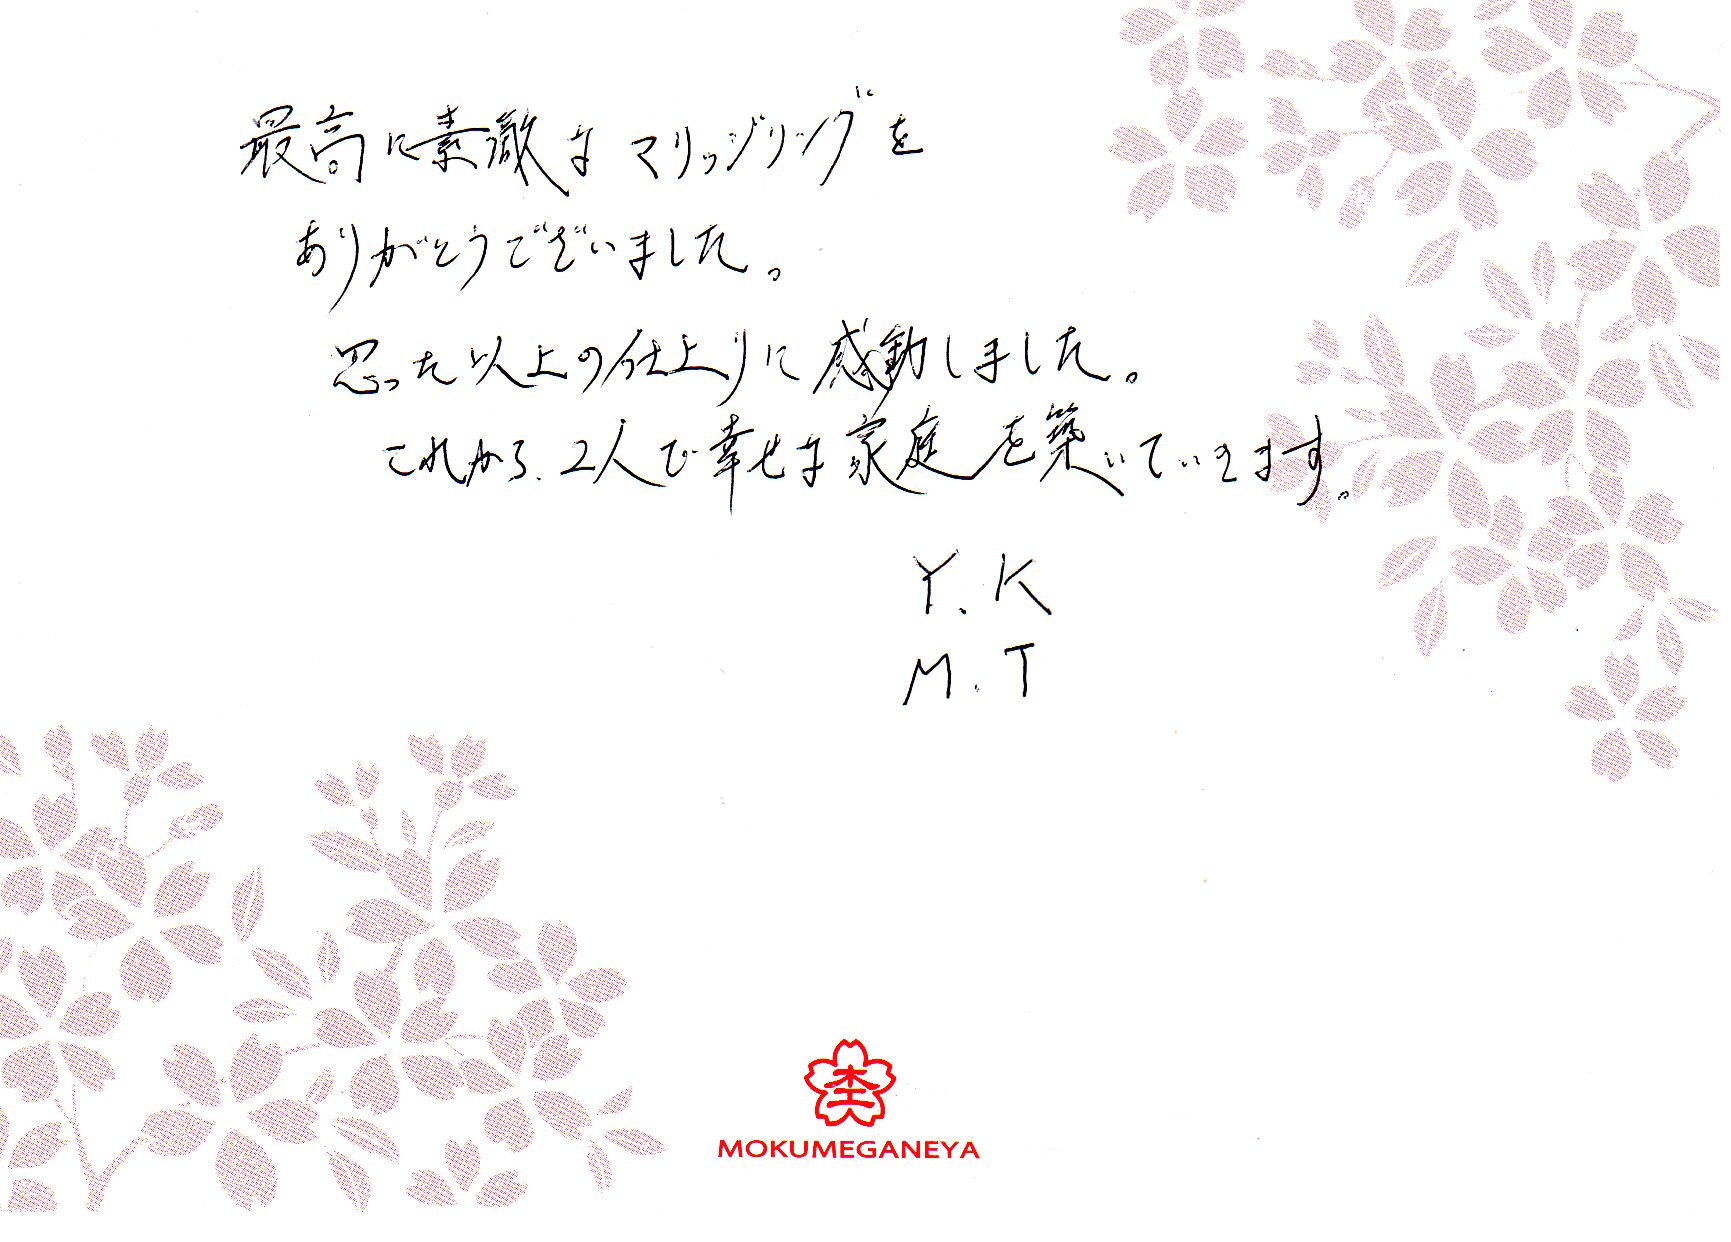 最高に素敵なマリッジリングを
ありがとうございました。
思った以上の仕上りに感動しました。
これから、2人で幸せな家庭を築いていきます。
Y.K
M.T
MOKUMEGANEYA